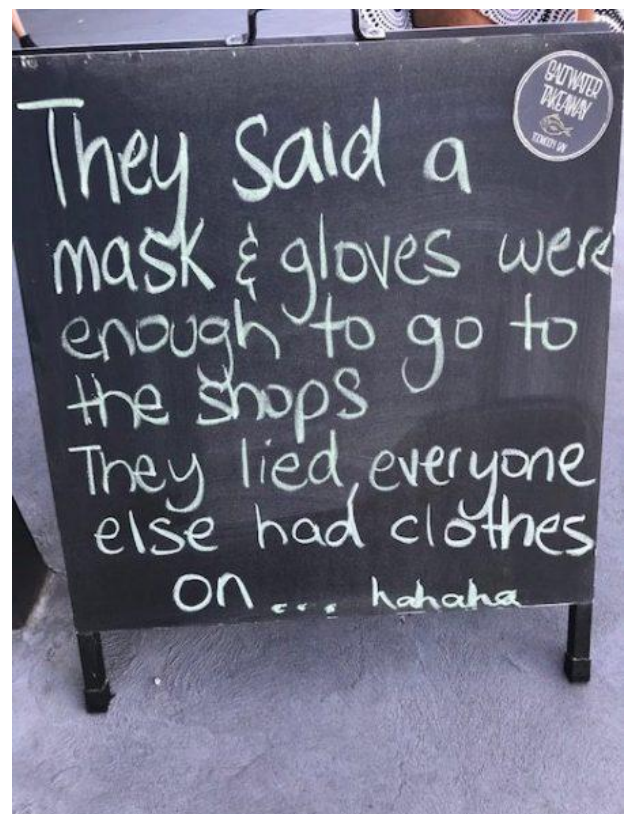 SALTWATER
TAKEAWAY
They said a
mask & gloves were
enough to go to
the shops
They lied, everyone
else had clothes
on... hahaha